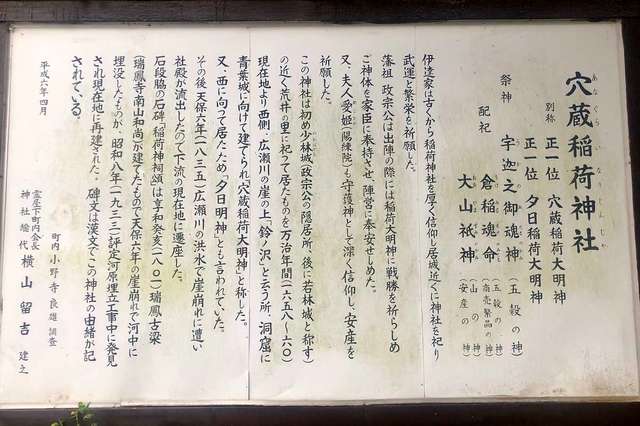 穴蔵稲荷神社
あなぐらいなりじんじゃ
別称 正一位 穴蔵稲荷大明神
正一位 夕日稲荷大明神
祭神 宇迦之御魂神 (五穀の神)
配祀 倉稲魂命 (五穀の神 商売繁品の神)
大山祇神 (山の神 安産の神)
伊達家は古くから稲荷神社を厚く信仰し居城近くに神社を祀り
武運と繁栄を祈願した。
藩祖 政宗公は出陣の際には稲荷大明神に戦勝を祈らしめ
ご神体を家臣に奉持させ、陣営に奉安せしめた。
又、夫人愛姫(陽徳院)も守護神として深く信仰し、安産を
祈願した。
この神社は初め少林城(政宗公の隠居所、後に若林城と称す)
の近く荒井の里に祀って居たものを万治年間(一六五八〜六〇)
現在地より西側、広瀬川の崖の上「鈴ノ沢」と云う所、洞窟に
青葉城に向けて建てられ「穴蔵稲荷大明神」と称した。
又、西に向って居たため「夕日明神」とも言われていた。
その後 天保六年(一八三五)広瀬川の洪水で崖崩れに遭い
社殿が流出したので下流の現在地に遷座した。
石段脇の石碑「稲荷神祠頌」は享和癸亥(一八〇一)瑞鳳古梁
(瑞鳳寺南山和尚)が建てたもので天保六年の崖崩れで河中に
埋没したものが、昭和八年(一九三三)評定河原埋立工事中に発見
され現在地に再建された。 碑文は漢文でこの神社の由緒が記
されている。
平成六年四月
町内 小野寺良雄 調査
霊屋下町内会長
神社総代 横山留吉 建之